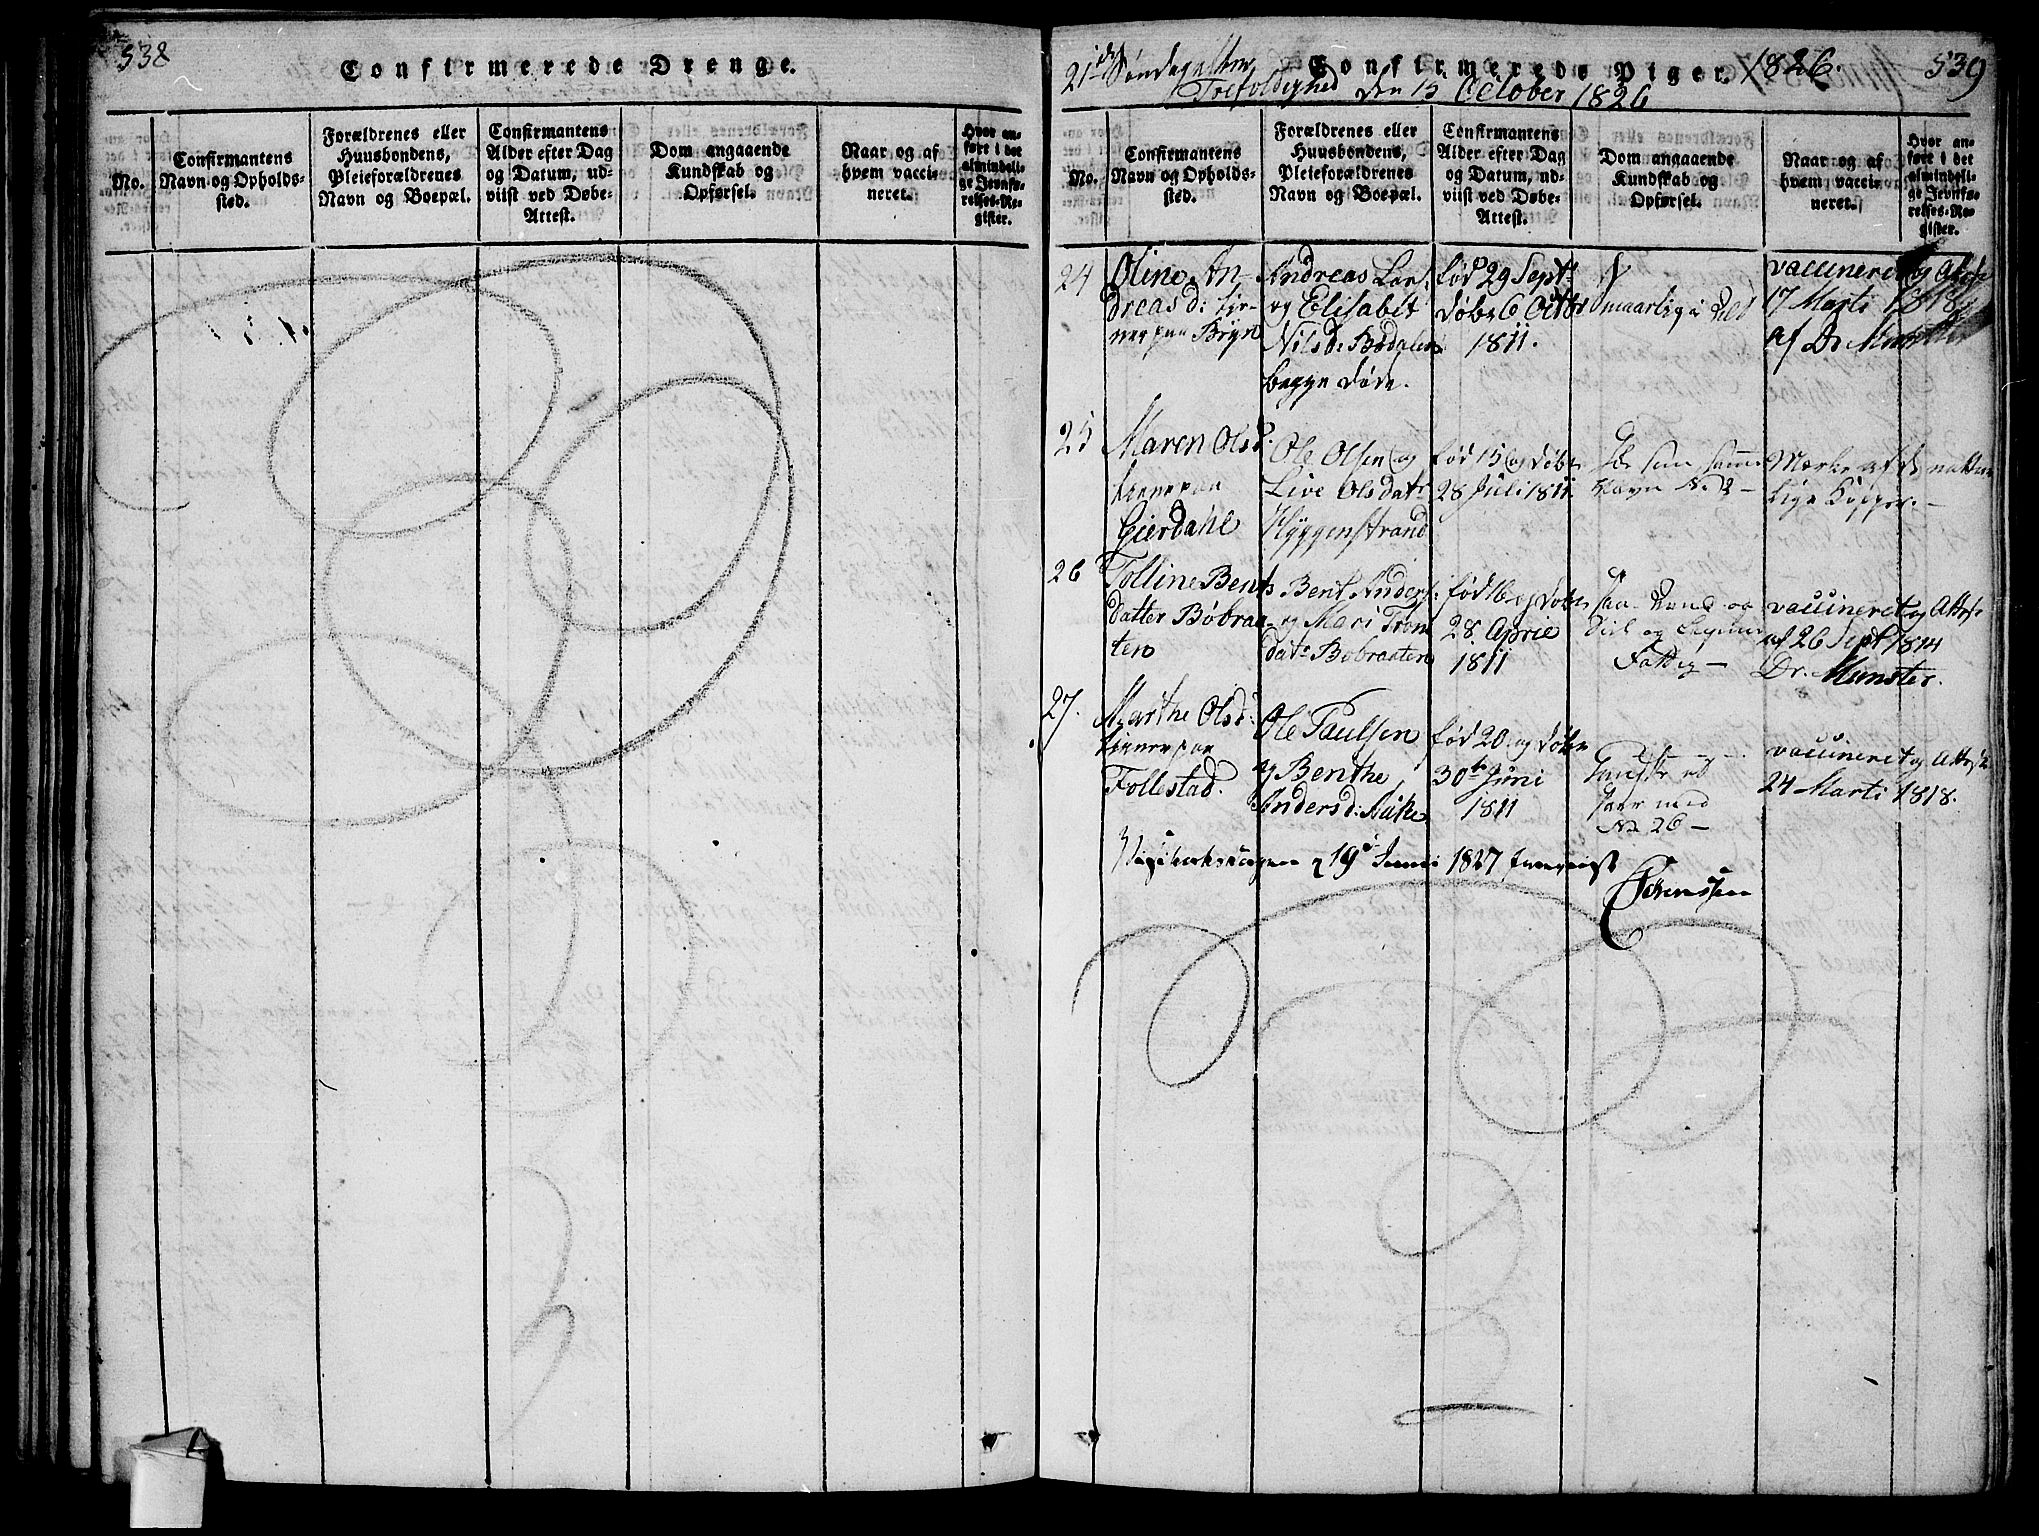 538
Confirmerede Drenge.
No.
Confirmantens
Navn og Opholds-
sted.
Forældrenes eller
Huusbondens,
Pleieforældrenes
Navn og Boepæl.
Confirmantens
Alder efter Dag
og Datum, ud-
viist ved Døbe-
Attest.
Dom angaaende
Kundskab og
Opførsel.
Naar og af
hvem vacci-
neret.
Hvor an-
ført i det
almindeli-
ge Jevnfø-
relses-Re-
gister.
21de Søndag efter
Trefoldighed den 15 October 1826
Confirmerede Piger. 1826.
539
No.
Confirmantens
Navn og Opholds-
sted.
Forældrenes eller
Huusbondens,
Pleieforældrenes
Navn og Boepæl.
Confirmantens
Alder efter Dag
og Datum, ud-
viist ved Døbe-
Attest.
Dom angaaende
Kundskab og
Opførsel.
Naar og af
hvem vacci-
neret.
Hvor an-
ført i det
almindeli-
ge Jevnfø-
relses-Re-
gister.
24
Oline An-
dreasd: tje-
ner paa Bryn
Andreas Lars:
og Elisabet
Nilsd: Bødalen
begge døde.
fød 29 Sept:
døbt 6 Octbr
1811.
maadelig i
vaccineret og Attest
17 Marti 1818
af Dr. Munster
25
Maren Olsd.
tiener paa
Gierdahl
Ole Olsen og
Live Olsdatr
Hyggenstrand
fød 15 og døbt
28 Juli 1811
som samme
Navn No 2 –
Mærke af de natur
lige Kopper. –
26
Tolline Bents
datter Bøbraa-
ten
Bent Anders:
og Mari Trom
datr Bøbraaten
fød 16 og døbt
28 April
1811
og
Fattig –
vaccineret og Attest
af 26 Sept 1814
Dr. Munster.
27.
Marthe Olsd:
tiener paa
Follestad.
Ole Paulsen
og Benthe
Andersd: Aake
fød 20 og døbt
30te Juni
1811
med
No 26 –
vaccineret og Attest
24 Marti 1818.
19de Junii 1827 foreviist
Sørenssen